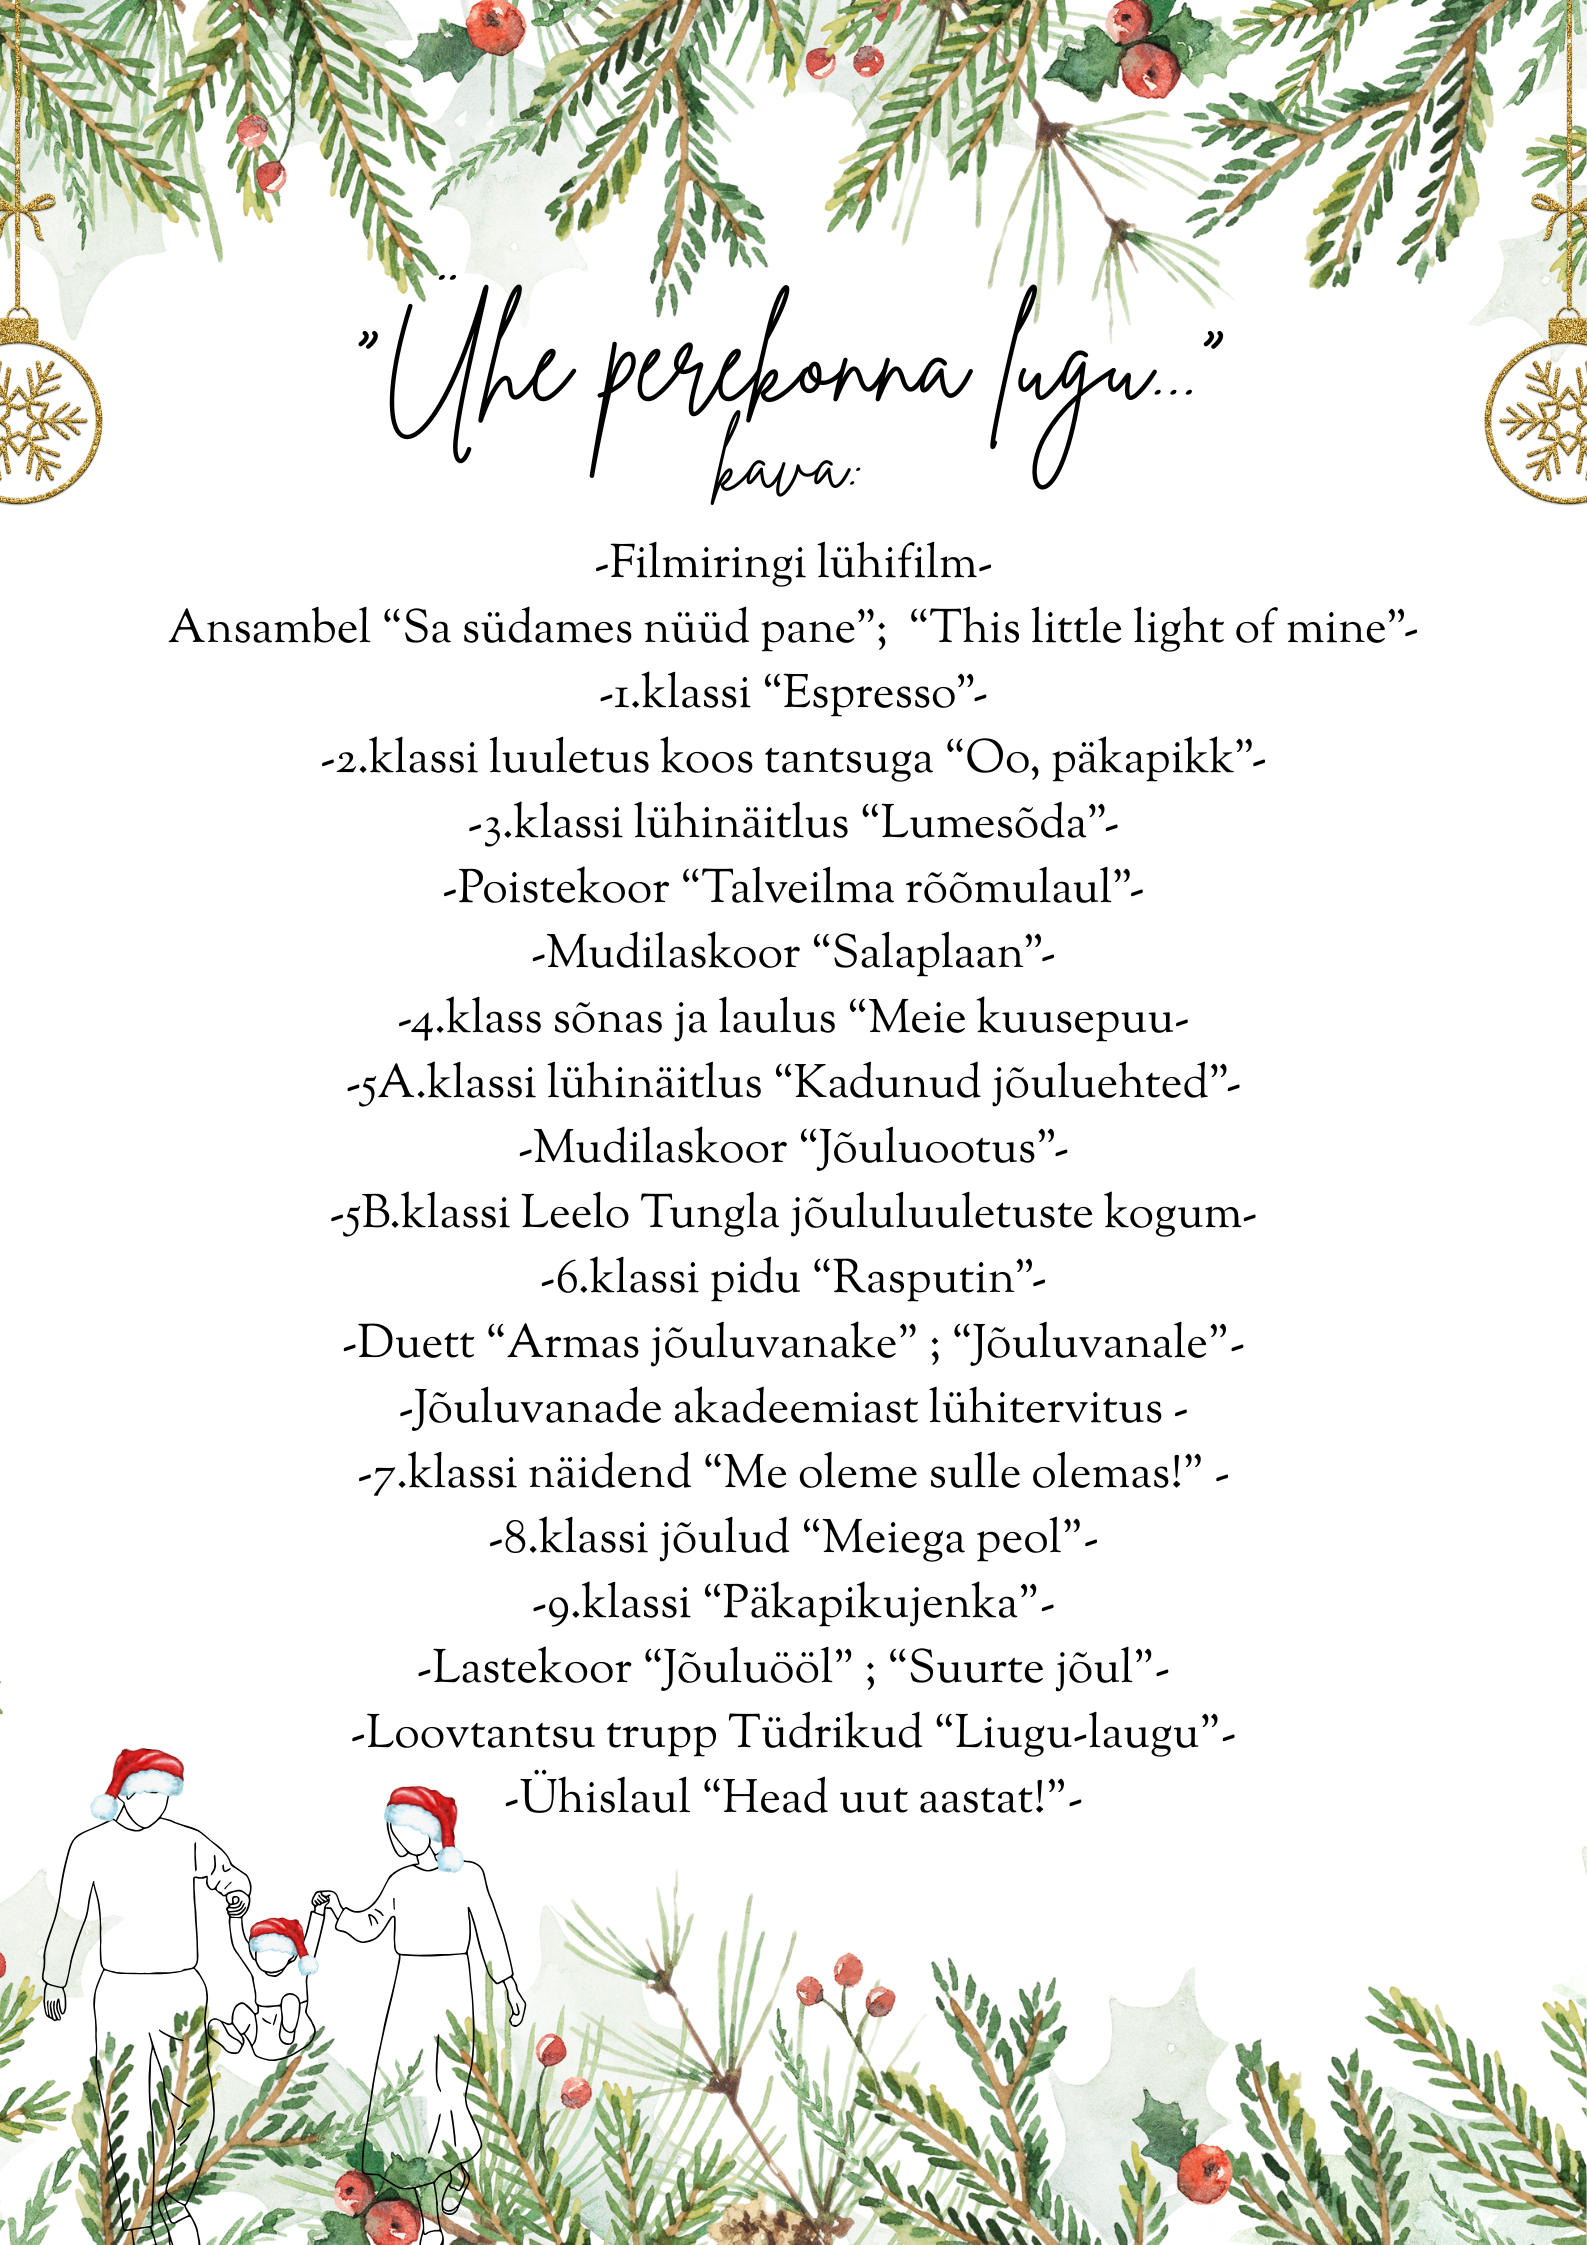 ”Ühe perekonna lugu...”
kava:
-Filmiringi lühifilm-
Ansambel “Sa südames nüüd pane”;  “This little light of mine”-
-1.klassi “Espresso”-
-2.klassi luuletus koos tantsuga “Oo, päkapikk”-
-3.klassi lühinäitlus “Lumesõda”-
-Poistekoor “Talveilma rõõmulaul”-
-Mudilaskoor “Salaplaan”-
-4.klass sõnas ja laulus “Meie kuusepuu-
-5A.klassi lühinäitlus “Kadunud jõuluehted”-
-Mudilaskoor “Jõuluootus”-
-5B.klassi Leelo Tungla jõululuuletuste kogum-
-6.klassi pidu “Rasputin”-
-Duett “Armas jõuluvanake” ; “Jõuluvanale”-
-Jõuluvanade akadeemiast lühitervitus -
-7.klassi näidend “Me oleme sulle olemas!” -
-8.klassi jõulud “Meiega peol”-
-9.klassi “Päkapikujenka”-
-Lastekoor “Jõuluööl” ; “Suurte jõul”-
-Loovtantsu trupp Tüdrikud “Liugu-laugu”-
-Ühislaul “Head uut aastat!”-